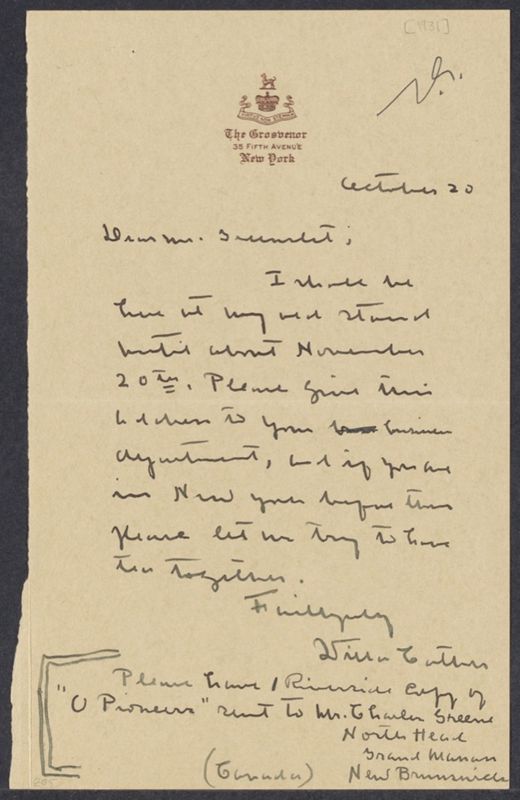 [1931]
The Grosvenor
35 FIFTH AVENUE
New York
October 20
Dear Mr. Greenslet;
I shall be
here at my old stand
until about November
20th. Please give this
address to your business
department, and if you are
in New York before then
please let us try to have
tea together.
Faithfully
Willa Cather
Please have 1 Riverside Copy of
"O Pioneers" sent to Mr. Charles Greene
North Head
Grand Manan
(Canada) New Brunswick